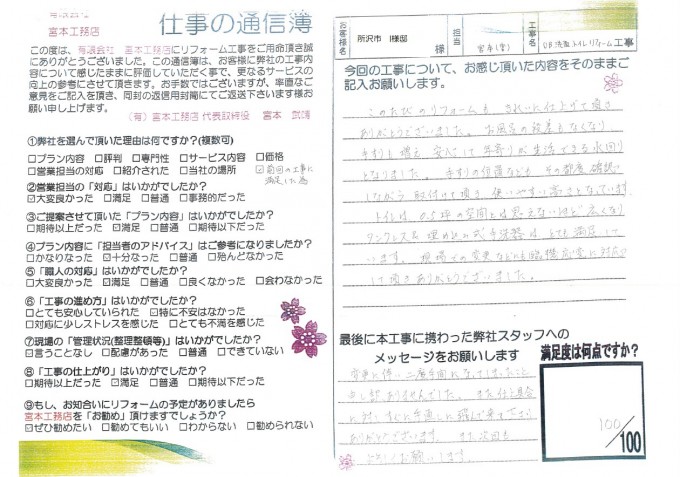 有限会社
宮本工務店
仕事の通信簿
この度は、有限会社　宮本工務店にリフォーム工事をご用命頂き誠
にありがとうございました。この通信簿は、お客様に弊社の工事
内容について感じたままに評価していただく事で、更なるサービスの
向上の参考にさせて頂きます。お手数ではございますが、率直なご
意見をご記入を頂き、同封の返信用封筒にてご返送下さいます様お
願い申し上げます。
（有）宮本工務店 代表取締役　宮本
①弊社を選んで頂いた理由は何ですか?(複数可)
□プラン内容　□評判　□専門性　□サービス内容　□価格
□営業担当の対応　□紹介された　□当社の場所　☑前回の工事に
満足した為
②営業担当の「対応」はいかがでしたか?
☑大変良かった　□満足　□普通　□事務的だった
③ご提案させて頂いた「プラン内容」はいかがでしたか?
□期待以上だった　☑満足　□普通　□期待以下だった
④プラン内容に「担当者のアドバイス」はご参考になりましたか?
□かなりなった　☑十分なった　□普通　□殆んどなかった
⑤「職人の対応」はいかがでしたか?
□大変良かった　☑満足　□普通　□良くなかった　□会わなかった
⑥「工事の進め方」はいかがでしたか?
□とても安心していられた　☑特に不安はなかった
□対応に少しストレスを感じた　□とても不満を感じた
⑦現場の「管理状況(整理整頓等)」はいかがでしたか?
☑言うことなし　□配慮があった　□普通　□できていない
⑧「工事の仕上がり」はいかがでしたか?
□期待以上だった　☑満足　□普通　□期待以下だった
⑨もし、お知合いにリフォームの予定がありましたら
宮本工務店を「お勧め」頂けますでしょうか?
☑ぜひ勧めたい　□勧めてもいい　□わからない　□勧められない
お客様名
所沢市　I様邸
様
担当
宮本
工事名
UB.洗面.トイレリフォーム工事
今回の工事について、お感じ頂いた内容をそのままご
記入お願いします。
このたびのリフォームも　きれいに仕上げて頂き
ありがとうございました。お風呂の段差もなくなり
手すりも増え　安心して年寄りが生活できる水回り
となりました。手すりの位置なども　その都度確認
しながら　取付けて頂き　使いやすい高さとなっています。
トイレは、0.5坪の空間とは思えないほど広くなり
タンクレス&埋め込み式手洗器は　とても満足して
います。現場での変更などにも臨機応変に対応
して頂きありがとうございました。
最後に本工事に携わった弊社スタッフへの
メッセージをお願いします
変更に伴い二度手間になってしまったこと
申し訳ありませんでした。また
ありがとうございます。また次回も
よろしくお願いします。
満足度は何点ですか?
100/100